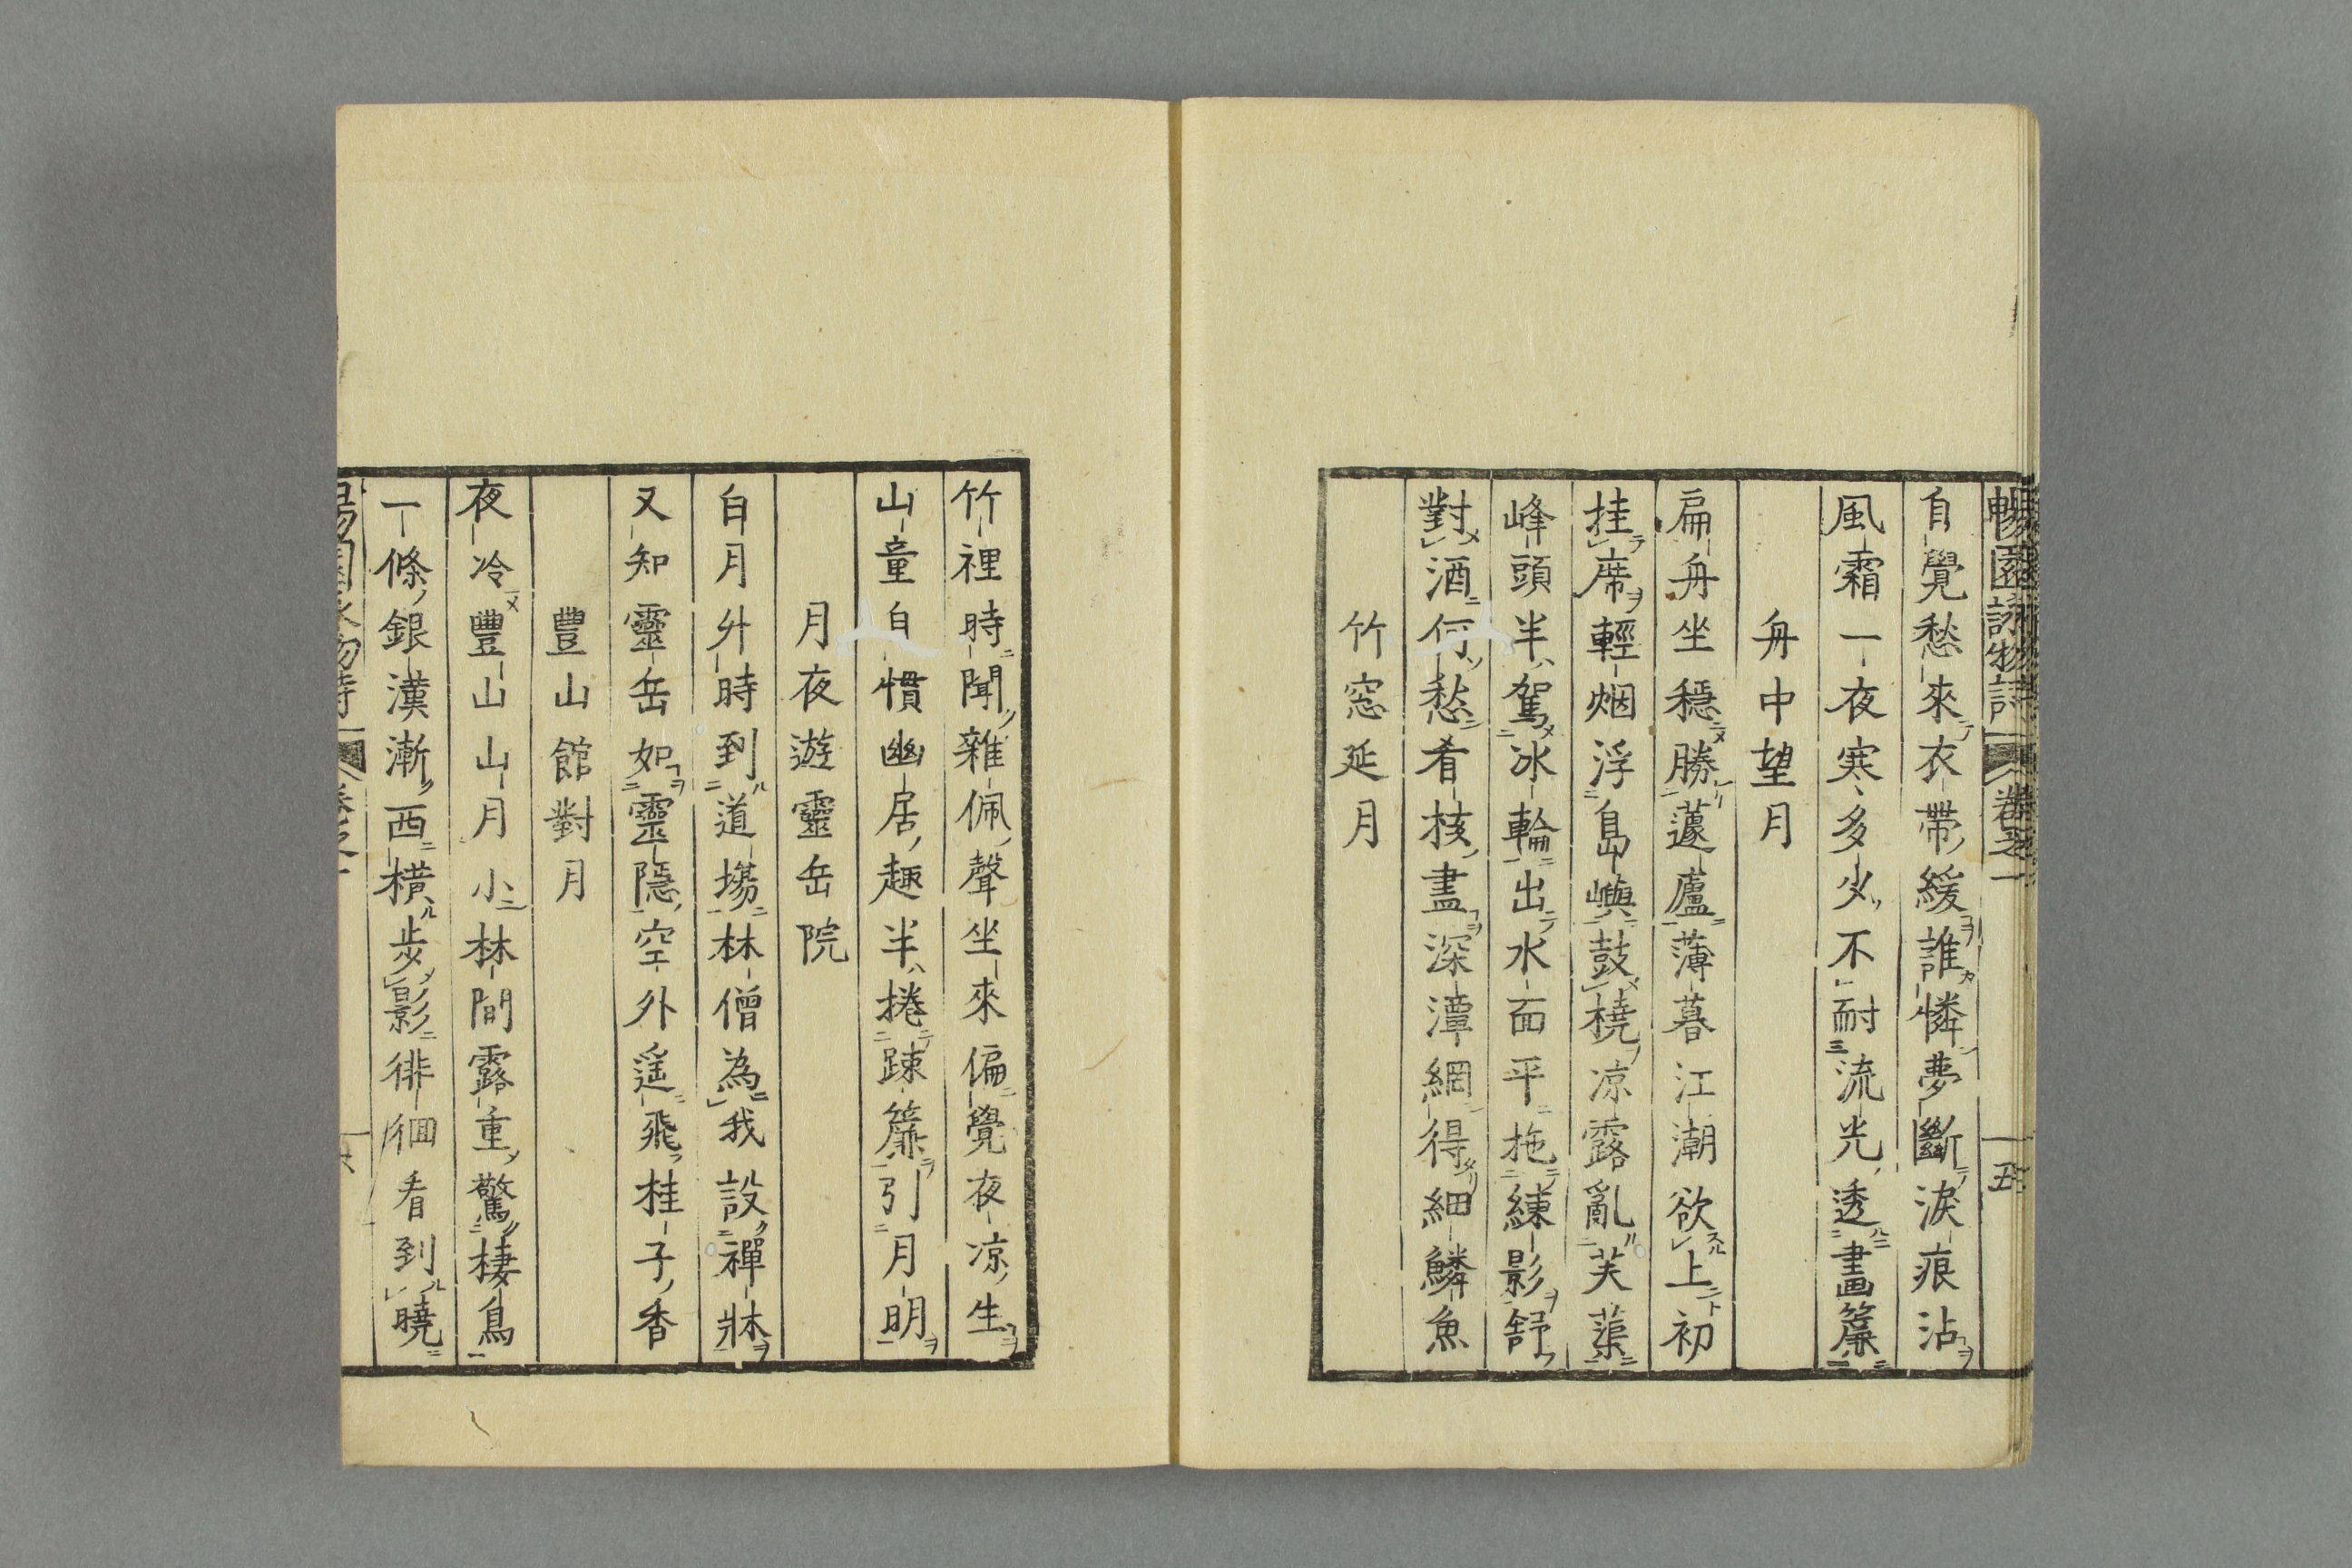 暢園詠物詩 卷之一 五
自覺愁來衣帶緩誰憐夢斷淚痕沾
風霜一夜寒多少不耐流光透畫簾
舟中望月
扁舟坐穩勝蘧廬薄暮江潮欲上初
挂席輕烟浮島嶼鼓橈凉露亂芙蕖
峰頭半駕冰輪出水面平拖練影舒
對酒何愁肴核盡深潭網得細鱗魚
竹窓延月
竹裡時聞雜佩聲坐來偏覺夜凉生
山童自慣幽居趣半捲踈簾引月明
月夜遊靈岳院
白月外時到道塲林僧為我設禪牀
又知靈岳如靈隱空外遥飛桂子香
豐山館對月
夜冷豐山山月小林間露重驚棲鳥
一條銀漢漸西橫步影徘徊看到曉
暢園詠物詩 卷之一